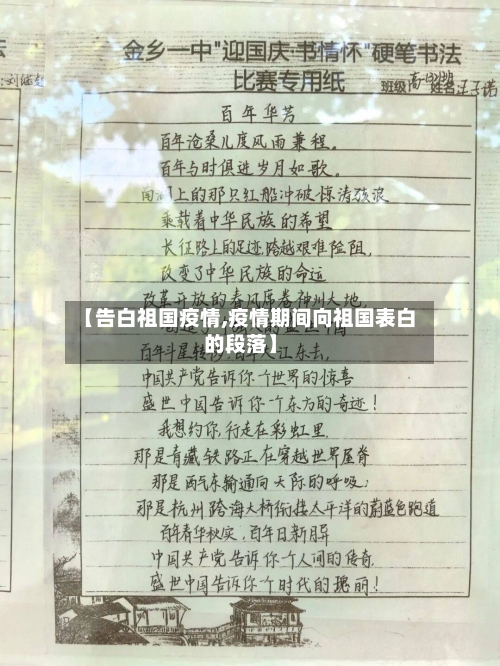 金乡一中"迎国庆·书情怀"硬笔书法
比赛专用纸
班级 姓名
百年华芳
百年沧桑几度风雨兼程。
百年与时俱进岁月如歌。
上的那只红船冲破惊涛骇浪
乘载着中华民族的希望
长征路上的足迹,跨越艰难险阻,
改变了中华民族的命运
改革开放的春风席卷神州大地,
【告白祖国疫情,疫情期间向祖国表白
的段落】
百年斗星转 大江东去,
中国共产党告诉你一个世界的惊喜
盛世中国告诉你一个东方的奇迹!
我想约你,行走在彩虹里.
那是青藏铁路正在穿越世界屋脊
那是西气东输通向天际的呼吸;
那是杭州跨海大桥衔接太平洋的蔚蓝色跑道
百年春华秋实,百年日新月异
中国共产党告诉你一个人间的传奇
盛世中国告诉你一个时代的瑰丽!